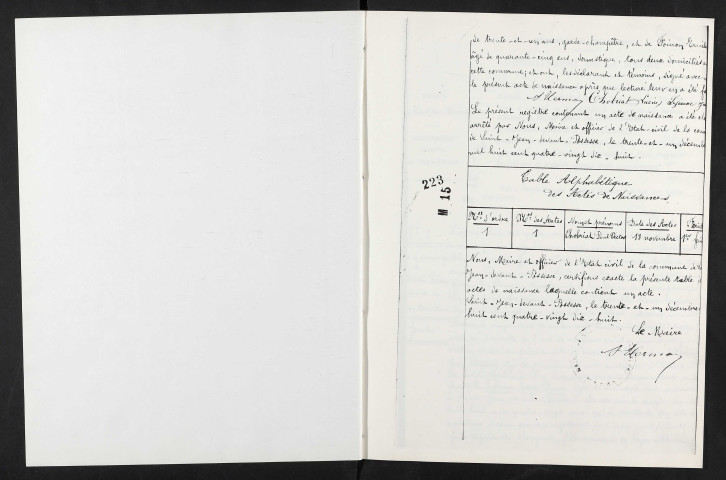 de trente-et-un ans, garde-champêtre, et de Foinon
âgé de quarante-cinq ans, domestique, tous deux domiciliés
cette commune; et ont, les déclarant et témoins, signé avec
le présent acte de naissance après que lecture leur en a été
A Hermay Chobriat
Le présent registre contenant un acte de naissance a été
arrêté par Nous, Maire et officier de l'Etat-civil de la
de Saint-Jean-devant-Possesse, le trente-et-un décembre
mil huit cent quatre-vingt dix-huit.
Table Alphabétique
des Actes de Naissances
223
M 15
Nos d'ordre
Nos des Actes
Nom et prénoms
Date des Actes
1
1
Chobriat Paul
13 novembre
1er
Nous, Maire et officier de l'Etat civil de la commune de
Jean-devant-Possesse, certifions exacte la présente table
actes de naissance laquelle contient un acte.
Saint-Jean-devant-Possesse, le trente-et-un décembre
huit cent quatre-vingt dix-huit.
Le Maire
A Hermay